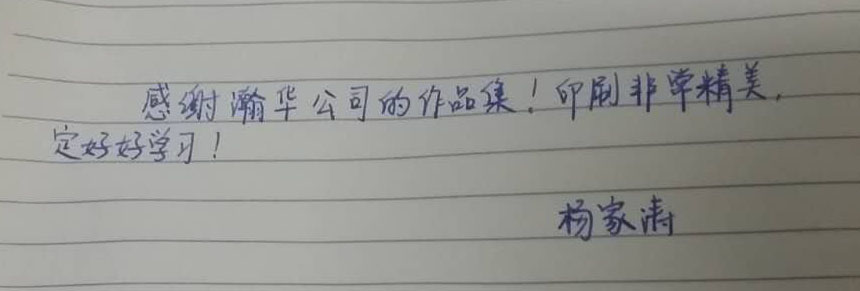 感谢瀚华公司的作品集！印刷非常精美，
定好好学习！
杨家涛